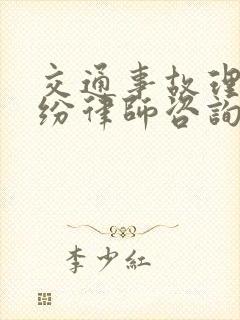 交通事故理
纷律师咨询
李少红